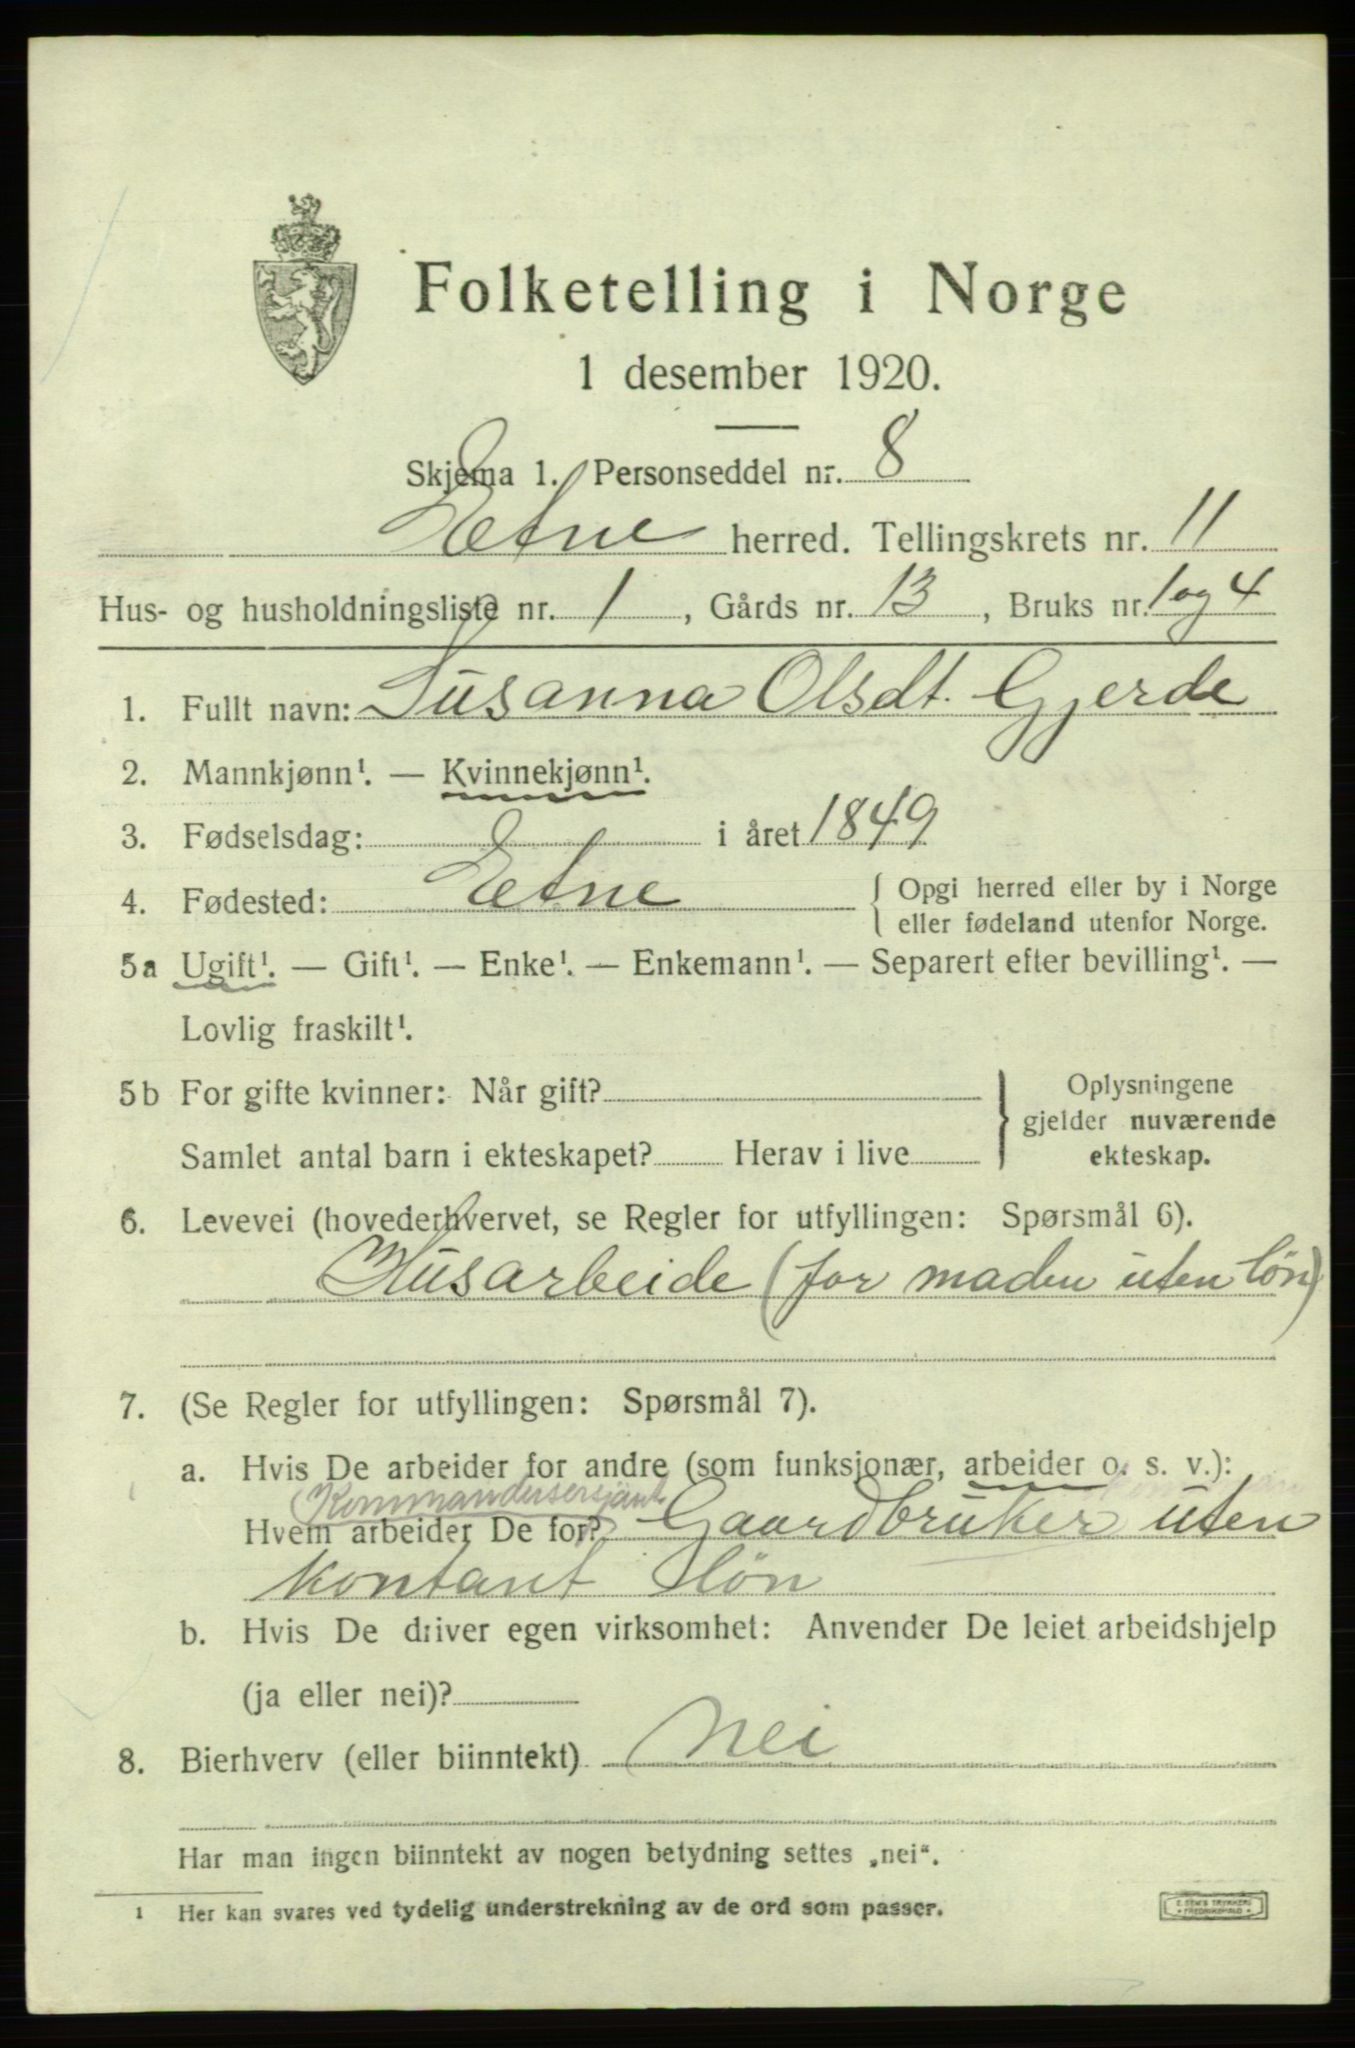 Folketelling i Norge
1 desember 1920.
Skjema 1. Personseddel nr. 8
Etne herred. Tellingskrets nr. 11
Hus- og husholdningsliste nr. 1, Gårds nr. 13, Bruks nr. 1 og 4
1. Fullt navn: Susanna Olsdt. Gjerde
2. Mannkjønn¹. — Kvinnekjønn¹.
3. Fødselsdag: i året 1849
4. Fødested: Etne { Opgi herred eller by i Norge
eller fødeland utenfor Norge.
5a Ugift¹. — Gift¹. — Enke¹. — Enkemann¹. — Separert efter bevilling¹. —
Lovlig fraskilt¹.
5b For gifte kvinner: Når gift?
Samlet antal barn i ekteskapet? Herav i live
} Oplysningene
gjelder nuværende
ekteskap.
6. Levevei (hovederhvervet, se Regler for utfyllingen: Spørsmål 6).
Husarbeide (for maden uten løn)
7. (Se Regler for utfyllingen: Spørsmål 7).
a. Hvis De arbeider for andre (som funksjonær, arbeider o. s. v.):
(Kommandersersjant)
Hvem arbeider De for? Gaardbruker uten
kontant løn
b. Hvis De driver egen virksomhet: Anvender De leiet arbeidshjelp
(ja eller nei)?
8. Bierhverv (eller biinntekt) Nei
Har man ingen biinntekt av nogen betydning settes „nei“.
1 Her kan svares ved tydelig understrekning av de ord som passer.